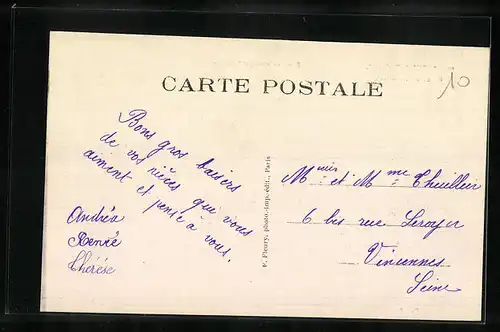 CARTE POSTALE
10
Bons gros baisers
de vos nièces qui vous
aiment et pense à
vous.
Andréa
Renée
Thérèse
F. Fleury, photo-imp.-édit., Paris
et Mme Thuillier
6 bis rue Leroyer
Vincennes
Seine